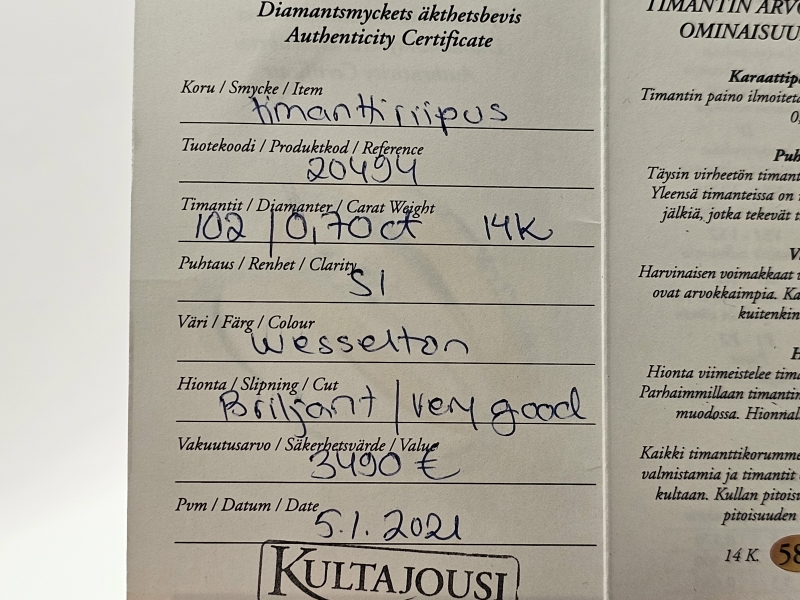 Diamantsmyckets äkthetsbevis
Authenticity Certificate
Koru / Smycke / Item
timanttiriipus
Tuotekoodi / Produktkod / Reference
20494
Timantit / Diamanter / Carat Weight
102 / 0,70 ct 14K
Puhtaus / Renhet / Clarity
SI
Väri / Färg / Colour
Wesselton
Hionta / Slipning / Cut
Briljant / very good
Vakuutusarvo / Säkerhetsvärde / Value
3490 €
Pvm / Datum / Date
5.1.2021
KULTAJOUSI
TIMANTIN
OMINAISUU
Karaattipa
Timantin paino ilmoiteta
0,
Puh
Täysin virheetön timant
Yleensä timanteissa on
jälkiä, jotka tekevät t
Harvinaisen voimakkaat
ovat arvokkaimpia. Ka
kuitenkin
H
Hionta viimeistelee tima
Parhaimmillaan timantin
muodossa. Hionnal
Kaikki timanttikorumme
valmistamia ja timantit
kultaan. Kullan pitois
pitoisuuden
14 K. 58